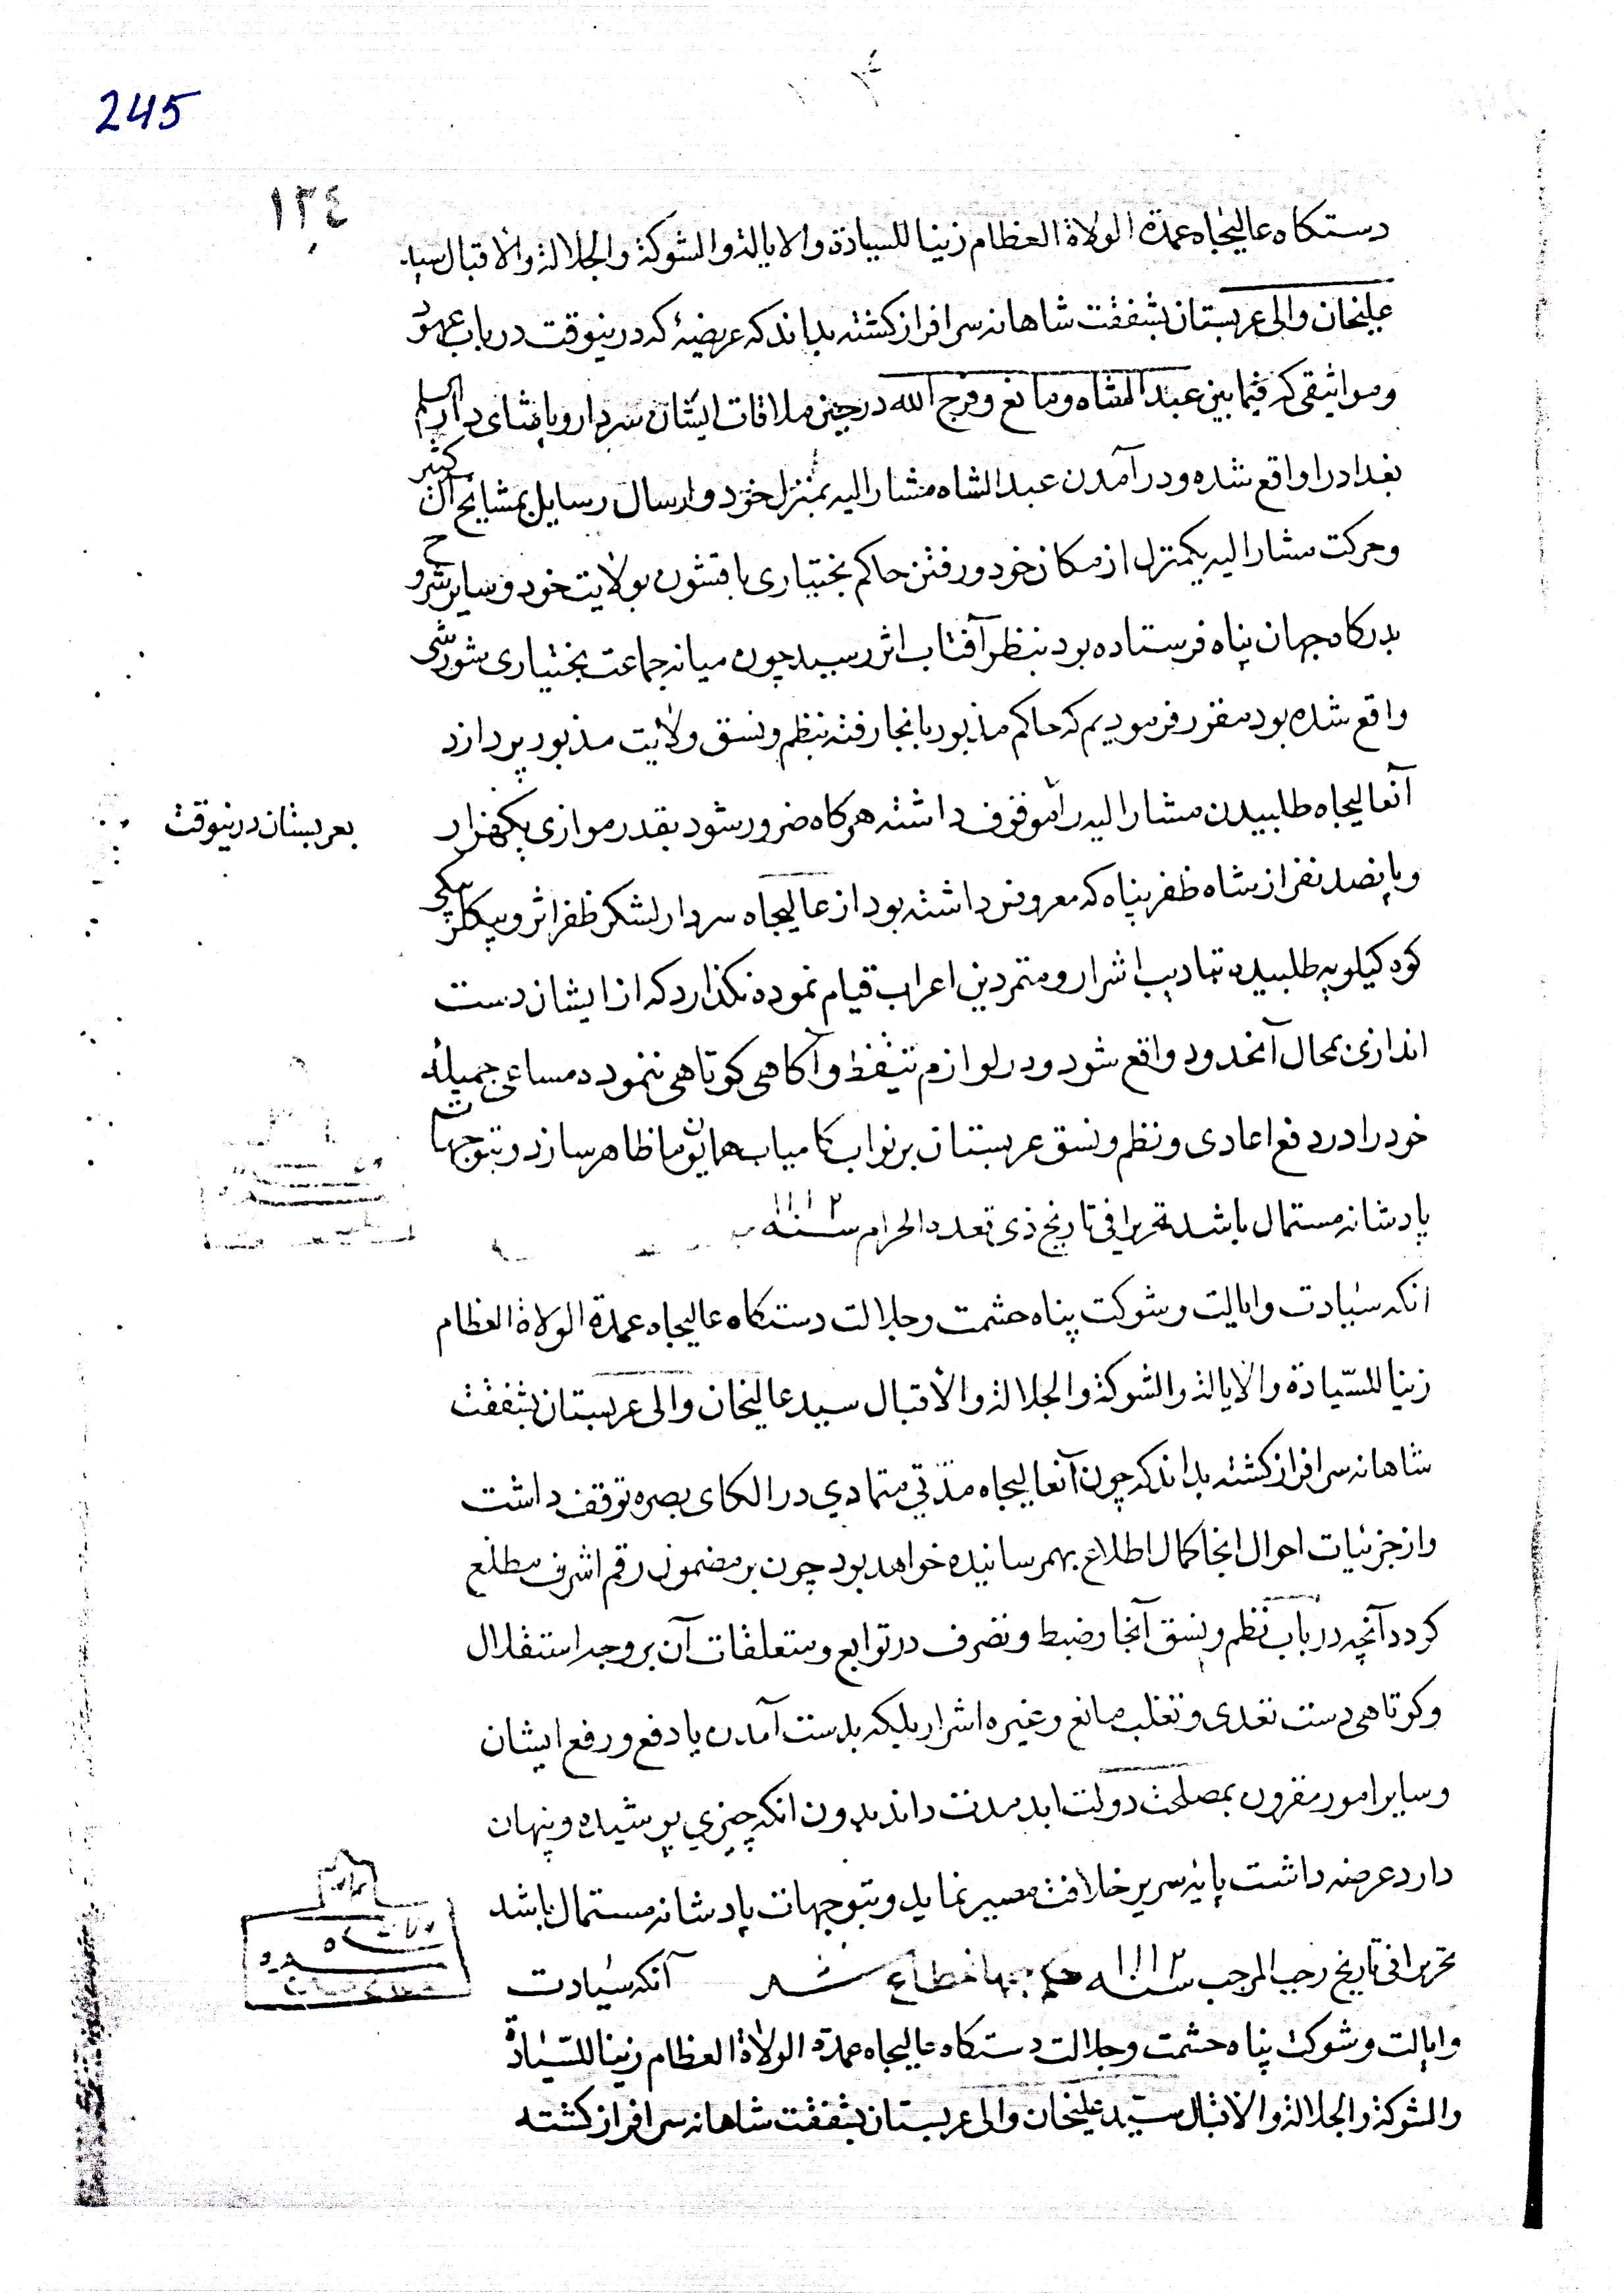 245
١٣٤
دستكاه عاليجاه عمدة الولاة العظام زينا للسيادة والايالة والشوكة والجلالة والاقبال سيد
عليخان والى عربستان بشفقت شاهانه سرافراز كشته بداند كه عريضهٔ كه درينوقت درباب عهود
ومواثيقى كه فيما بين عبدالشاه ومانع وفرج الله درحين ملاقات ايشان سردار وپاشاى دارالسلم
بغداد را واقع شده ودرآمدن عبدالشاه مشاراليه بمنزل خود وارسال رسايل بمشايخ آل كثير
وحركت مشاراليه يكمنزل از مكان خود ورفتن حاكم بختيارى باقشون بولايت خود وساير شروح
بدركاه جهان پناه فرستاده بود بنظر آفتاب اثر رسيد چون ميانه جماعت بختيارى شورشى
واقع شده بود مقرر فرموديم كه حاكم مذبور بانجا رفته بنظم ونسق ولايت مذبور پردازد
آنعاليجاه طلبيدن مشاراليه را موقوف داشته هركاه ضرور شود بقدر موازى يكهزار
بعربستان درينوقت
وپانصد نفر از سپاه ظفر پناه كه معروض داشته بود از عاليجاه سردار لشكر ظفر اثر وبيكلربيكى
كوه كيلويه طلبيده بتاديب اشرار ومتمردين اعراب قيام نموده نكذارد كه از ايشان دست
اندازى بمحال آنحدود واقع شود ودر لوازم تيقظ وآكاهى كوتاهى ننموده مساعى جميله
خود را در دفع اعادى ونظم ونسق عربستان بر نواب كامياب همايون ما ظاهر سازد وبتوجهات
پادشانه مستمال باشد تحريرا فى تاريخ ذى قعدة الحرام سنه ١١١٢
انكه سيادت وايالت وشوكت پناه حشمت وجلالت دستكاه عاليجاه عمدة الولاة العظام
زينا للسّيادة والايالة والشوكة والجلالة والاقبال سيد عاليخان والى عربستان بشفقت
شاهانه سرافراز كشته بداند كه چون آنعاليجاه مدّتي متمادي در الكاى بصره توقف داشت
واز جزئيات احوال انجا كمال اطلاع بهم رسانيده خواهد بود چون بر مضمون رقم اشرف مطلع
كردد آنچه درباب نظم ونسق آنجا وضبط وتصرف در توابع ومتعلقات آن بر وجه استقلال
وكوتاهى دست تعدى وتغلب مانع وغيره اشرار بلكه بدست آمدن يا دفع ورفع ايشان
وساير امور مقرون بمصلحت دولت ابد مدت داند بدون انكه چيزي پوشيده وپنهان
دارد عرضه داشت پايه سرير خلافت مصير نمايد وبتوجهات پادشانه مستمال باشد
تحريرا فى تاريخ رجب المرجب سنه ١١١٢ حكم جهانمطاع شد آنكه سيادت
وايالت وشوكت پناه حشمت وجلالت دستكاه عاليجاه عمدة الولاة العظام زينا للسّيادة
والشوكة والجلالة والاقبال سيّد عليخان والى عربستان بشفقت شاهانه سرافراز كشته